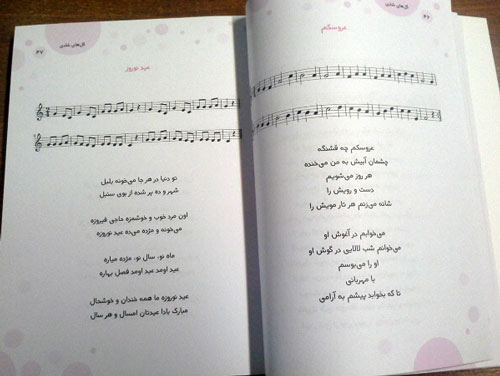 گل‌های شادی
۴۶
عروسکم
عروسکم چه قشنگه
چشمان آبیش به من می‌خنده
هر روز می‌شویم
دست و رویش را
شانه می‌زنم هر تار مویش را
می‌خوابم در آغوش او
می‌خوانم شب لالایی در گوش او
او را می‌بوسم
با مهربانی
تا که بخوابد پیشم به آرامی
گل‌های شادی
۴۷
عید نوروز
تو دنیا در هر جا می‌خونه بلبل
شهر و ده پر شده از بوی سنبل
اون مرد خوب و خوشمزه حاجی فیروزه
می‌خونه و مژده می‌ده عید نوروزه
ماه نو، سال نو، مژده میاره
عید اومد عید اومد فصل بهاره
عید نوروزه ما همه خندان و خوشحال
مبارک بادا عیدتان امسال و هر سال